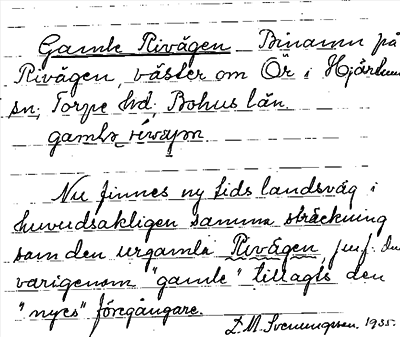 Gamle Rivägen Binamn på
Rivägen, väster om Ör i Hjärtum
sn, Torpe hd, Bohus län.
gamlə
Nu finnes ny tids landsväg i
huvudsakligen samma sträckning
som den urgamla Rivägen, jmf. du
varigenom "gamle" tillagts den
"nyes" föregångare.
D.M. Svenungsson. 1935.